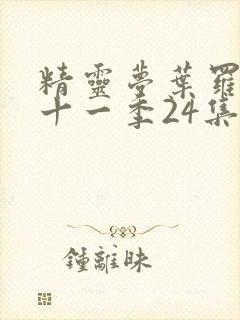 精靈夢葉羅
十一季24集
鍾離昧